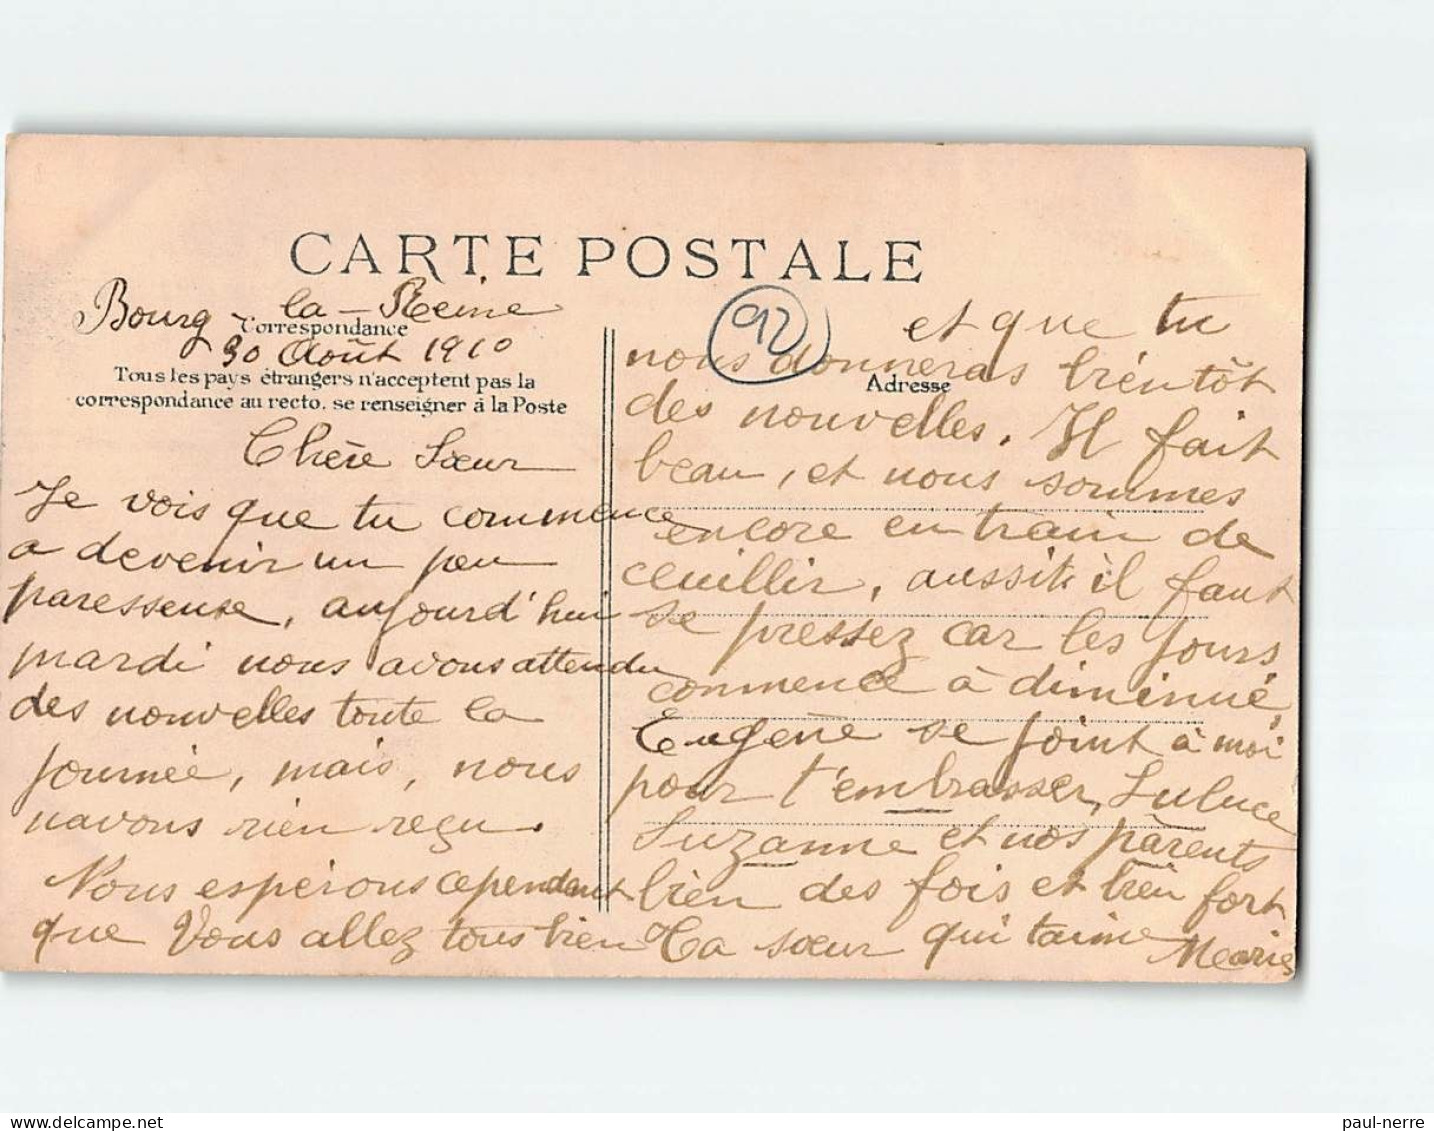 CARTE POSTALE
Bourg-la-Reine
Correspondance
30 Août 1910
Tous les pays étrangers n'acceptent pas la
correspondance au recto, se renseigner à la Poste
Chère Sœur
Je vois que tu commence
a devenir un peu
paresseuse, aujourd'hui
mardi nous avons attendu
des nouvelles toute la
journée, mais, nous
navons rien reçu.
Nous espérons cependant
que Vous allez tous bien
92
et que tu
nous donneras bientôt
Adresse
des nouvelles. Il fait
beau, et nous sommes
encore en train de
ceuillir, aussit il faut
se pressez car les jours
commence à diminué,
Eugène se joint à moi
pour t'embrasser, Luluce
Suzanne et nos parents
bien des fois et bien fort
Ta sœur qui taime Marie
paul-nerre